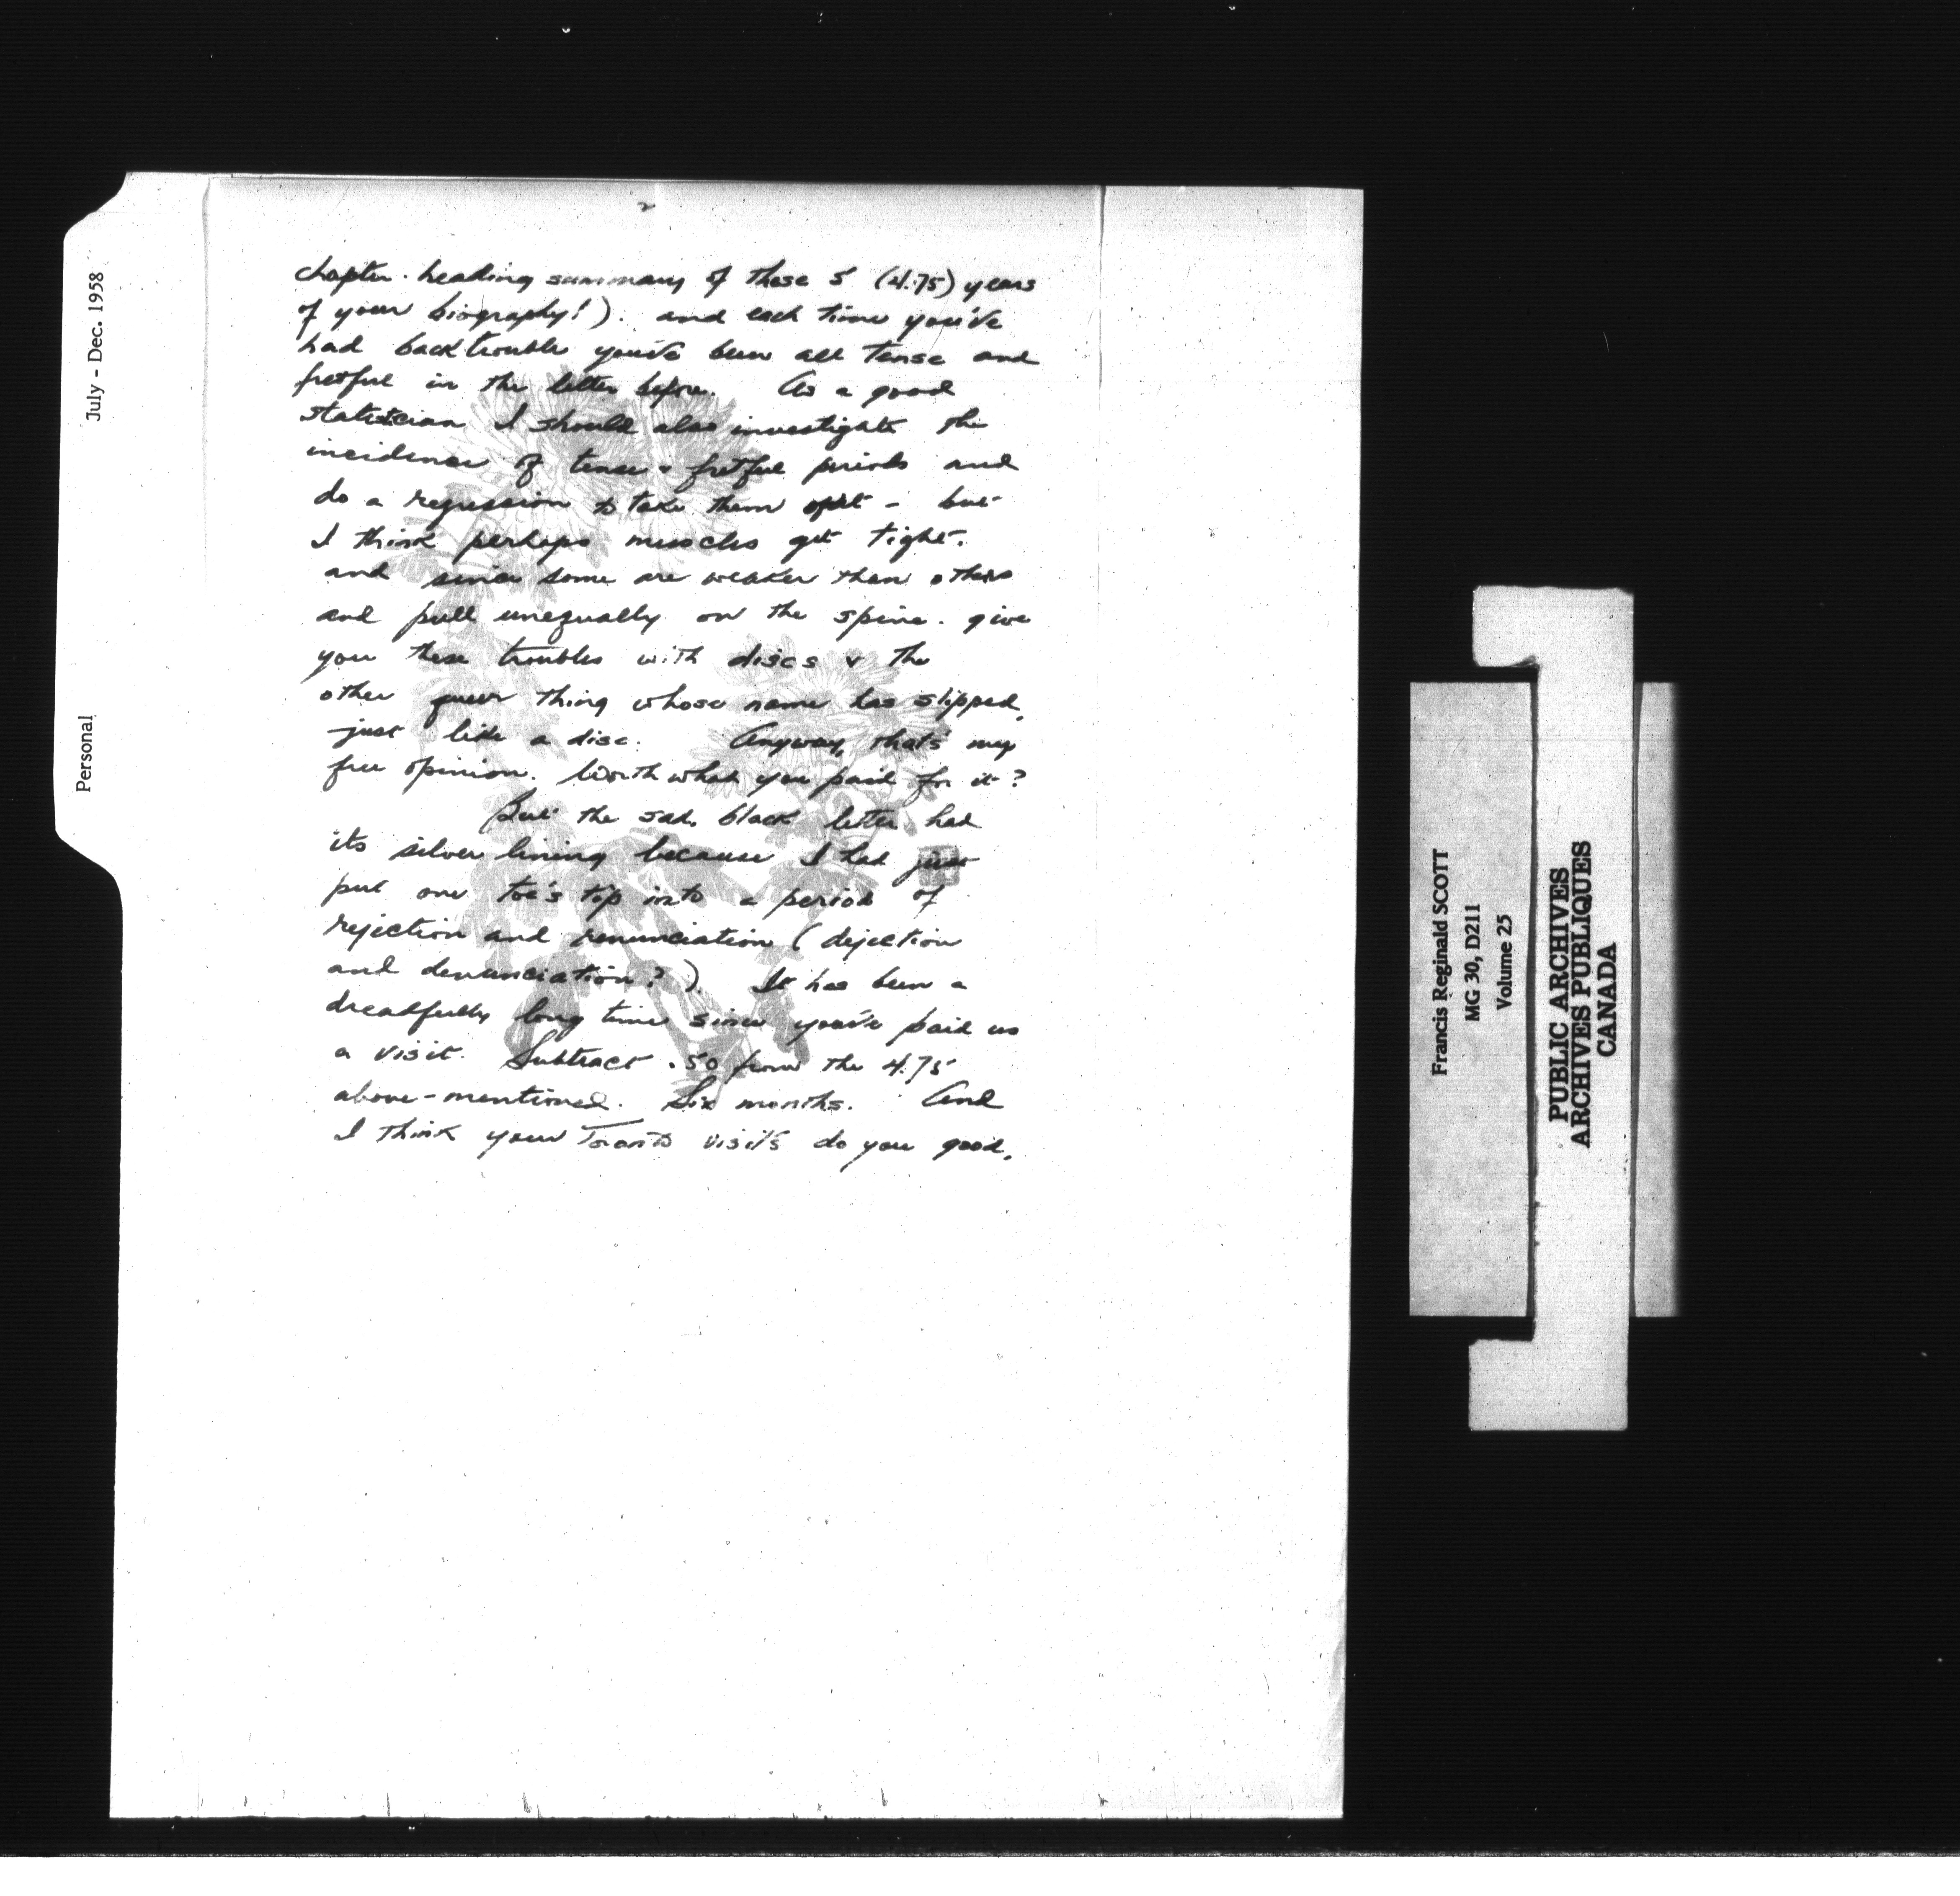 2
chapter-heading summary of these 5 (4.75) years
of your biography!). and each time you've
had backtrouble you've been all tense and
fretful in the letter before. As a good
statistician I should also investigate the
incidence of tense & fretful periods and
do a regression to take them out - but
I think perhaps muscles get tight.
and since some are weaker than others
and pull unequally on the spine. give
you these troubles with discs & the
other queer thing whose name has slipped,
just like a disc. Anyway, that's my
free opinion. Worth what you paid for it?
But the sad, black letter had
its silver lining because I had just
put one toe's tip into a period of
rejection and renunciation (dejection
and denunciation?). It has been a
dreadfully long time since you've paid us
a visit. Subtract .50 from the 4.75
above-mentioned. Six months. And
I think your Toronto visits do you good.
July - Dec. 1958
Personal
Francis Reginald SCOTT
MG 30, D211
Volume 25
PUBLIC ARCHIVES
ARCHIVES PUBLIQUES
CANADA